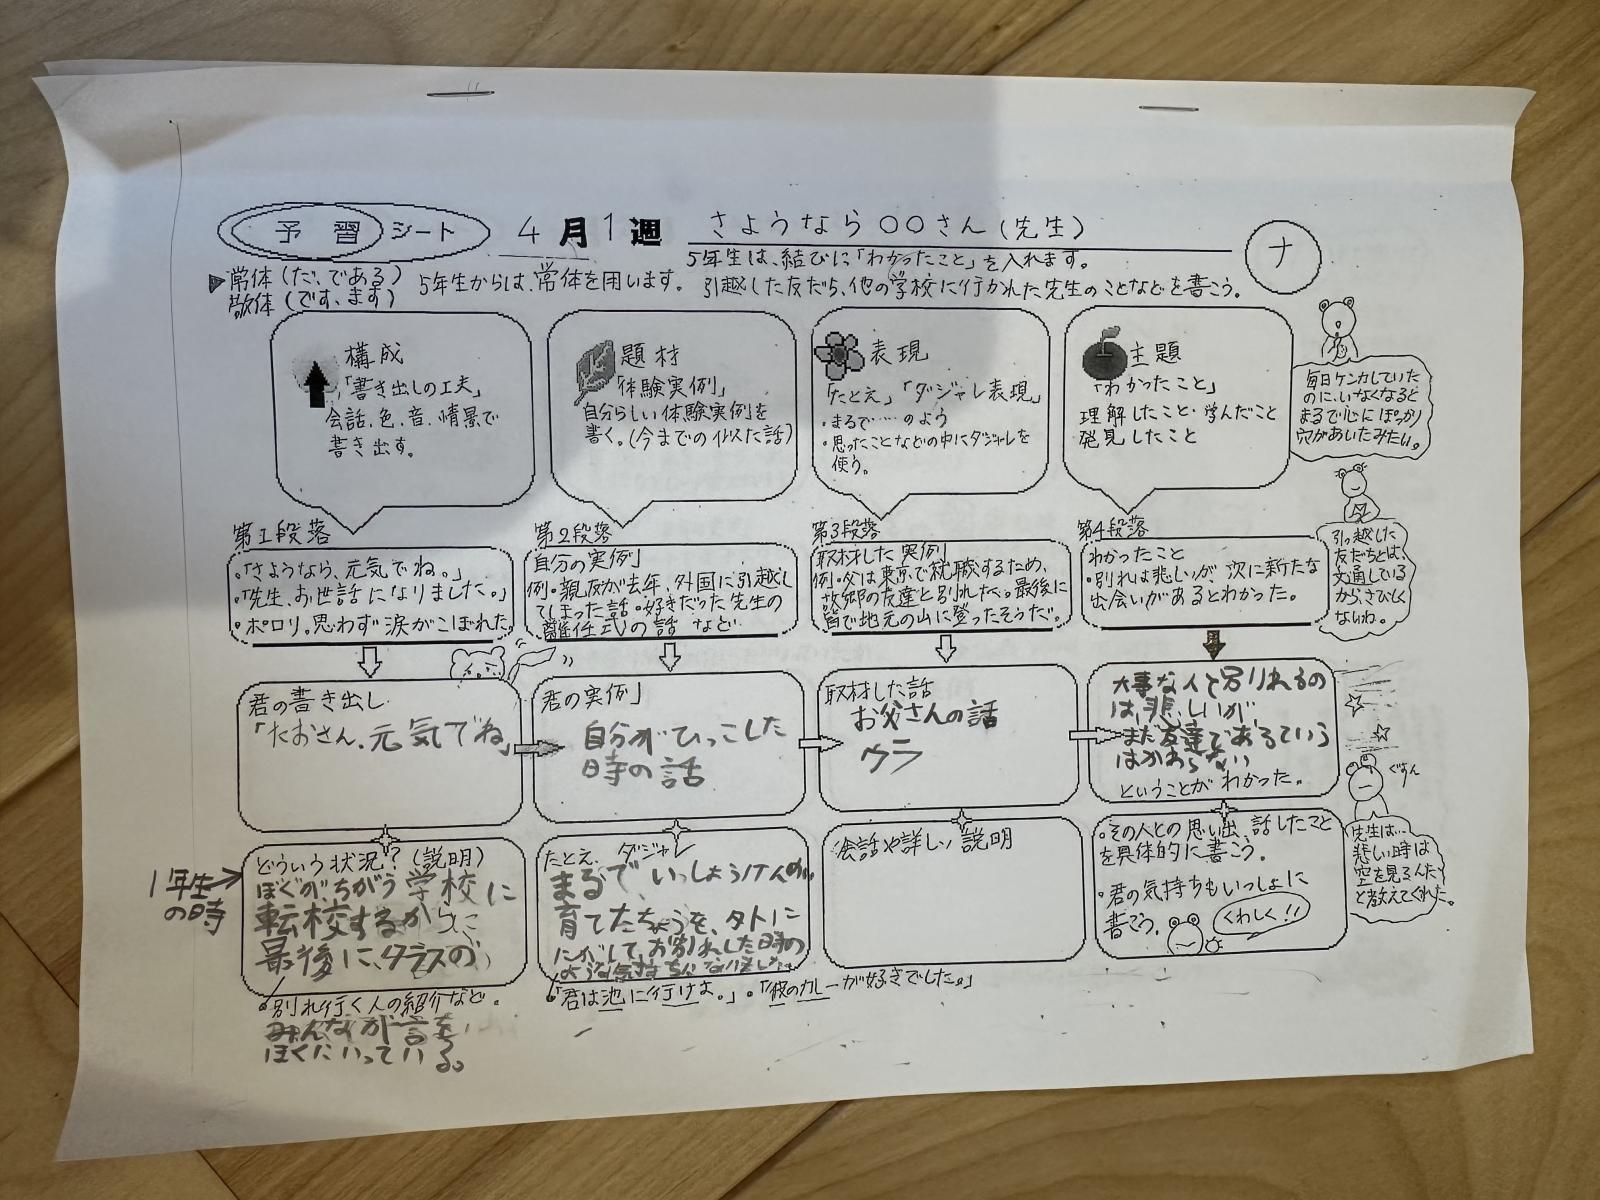 予習シート 4月1週 さようなら〇〇さん(先生) ナ
5年生は、結びに「わかったこと」を入れます。
▶常体(だ、である) 5年生からは、常体を用います。 引越した友だち、他の学校に行かれた先生のことなどを書こう。
敬体(です、ます)
構成
「書き出しの工夫」
会話、色、音、情景で
書き出す。
題材
「体験実例」
自分らしい体験実例を
書く。(今までの似た話)
表現
「たとえ」「ダジャレ表現」
・まるで……のよう
・思ったことなどの中にダジャレを
使う。
主題
「わかったこと」
理解したこと・学んだこと
発見したこと
毎日ケンカしていた
のに、いなくなると
まるで心にぽっかり
穴があいたみたい。
第1段落
・「さようなら、元気でね。」
・「先生、お世話になりました。」
・ポロリ。思わず涙がこぼれた。
第2段落
自分の実例」
例・親友が去年、外国に引越し
てしまった話・好きだった先生の
離任式の話 など
第3段落
取材した実例」
例・父は東京で就職するため、
故郷の友達と別れた。最後に
皆で地元の山に登ったそうだ。
第4段落
わかったこと
・別れは悲しいが、次に新たな
出会いがあるとわかった。
引っ越した
友だちとは、
文通している
から、さびしく
ないね。
君の書き出し
「たおさん、元気でね」
君の実例」
自分がひっこした
時の話
取材した話
お父さんの話
ウラ
大事な人と別れるの
は、悲しいが、
まだ友達であるという
はかわらない
ということがわかった。
ぐすん
先生は…
悲しい時は
空を見るんだ
と教えてくれた。
1年生
の時
どういう状況?(説明)
ぼくがちがう学校に
転校するから、
最後に、クラスの
・別れ行く人の紹介など。
みんなが言
ぼくにいっている。
たとえ、ダジャレ
まるで、いっしょうけんめい
育てたちょうを、外に
にがして、お別れした時の
ような気持ちに
・「君は池に行けよ。」・「彼のカレーが好きでした。」
会話や詳しい説明
・その人との思い出、話したこと
を具体的に書こう。
・君の気持ちもいっしょに
書こう。
くわしく!!